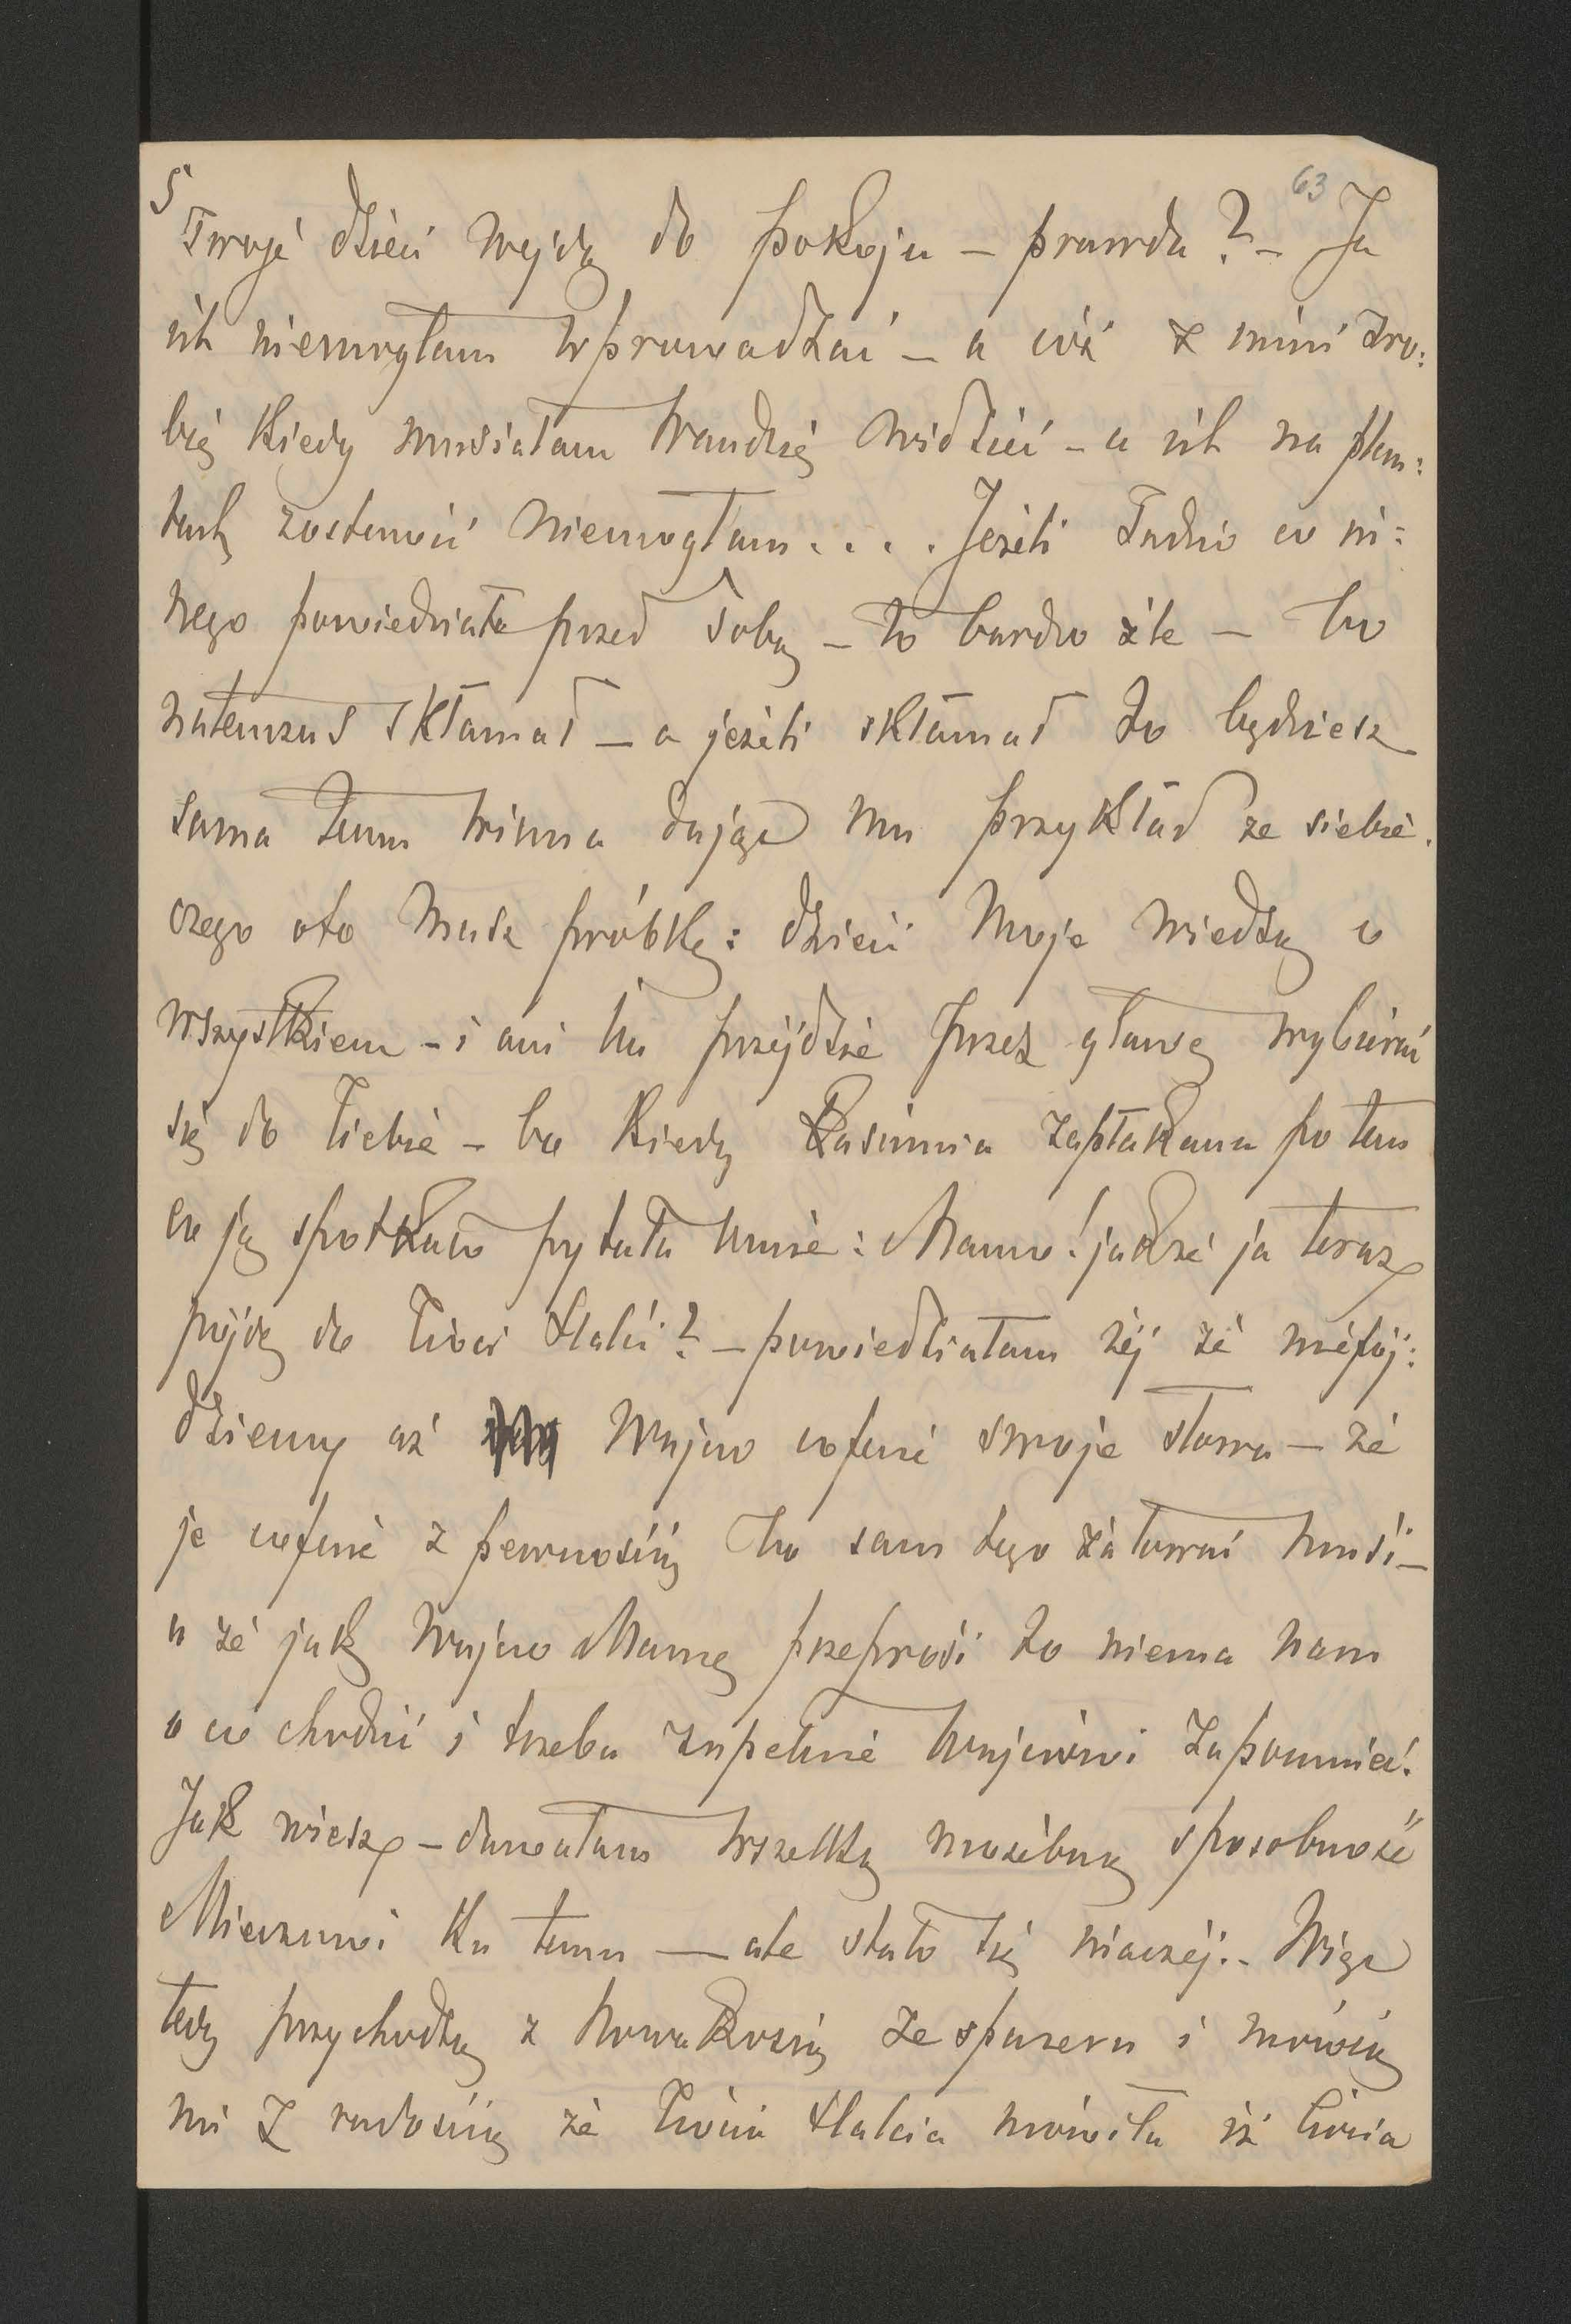 5
63
Twoje dzieci wejdą do pokoju – prawda? – Ja
ich niemogłam wprowadzać – a cóż z nimi zro:
bię kiedy musiałam Wandzię widzieć – a ich na plan:
tach zostawić niemogłam.... Jeżeli Tadzio co in:
nego powiedział przed Tobą – to bardzo źle – bo
natenczas skłamał – a jeżeli skłamał to będziesz
sama temu winna dając mu przykład ze siebie.
czego oto masz próbkę: dzieci moje wiedzą o
wszystkiem – i ani im przejdzie przez głowę wybierać
się do Ciebie – bo kiedy Kasimia zapłakana po tem
co ją spotkało pytała mnie: Mamo! jakże ja teraz
pójdę do Cioci Halci? – powiedziałam jéj że niepój:
dziemy aż Wujcio cofnie swoje słowa – że
je cofnie z pewnością bo sam tego żałować musi –
a że jak Wujcio Mamę przeprosi to niema nam
o co chodzić i trzeba zupełnie Wujciowi zapomnieć.
Jak wiesz – dawałam wszelką możebną sposobność
Mieciowi ku temu – ale stało się inaczéj. – Więc
tedy przychodzą z Nowakosią ze spaceru i mówią
mi z radością że Ciocia Halcia mówiła iż Ciocia